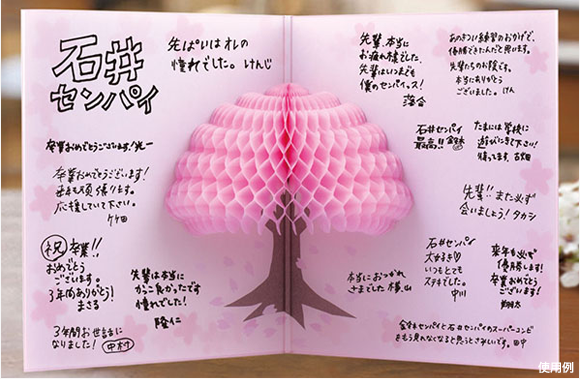 石井
センパイ
先ぱいは オレの
憧れでした。けんじ
卒業おめでとうございます!
卒業おめでとうございます!
頑張ります。
応援していて下さい。
祝 卒業!!
おめでとう
ございます。
3年間ありがとう!
まさる
3年間お世話に
なりました! 中村
先輩は本当に
かっこ良かったです
憧れでした!
隆仁
先輩、本当に
お疲れ様でした。
先輩はいつまでも
僕のセンパイっス!
落合
あのきつい練習のおかげで、
優勝できたんだと思います。
先輩たちのお陰です。
本当にありがとう
ございました。けん
石井センパイ
最高!!
たまには学校に
遊びにきて下さい!
待ってます。古畑
先輩!! また必ず
会いましょう! タカシ
石井センパイ
大好き♡
いつもとても
ステキでした。
中川
来年も必ず
優勝します!
卒業おめでとう
ございます!
翔太
本当におつかれ
さまでした 横山
金本センパイと石井センパイのスーパーコンビ
をもう見れなくなると思うとさみしいです。田中
使用例